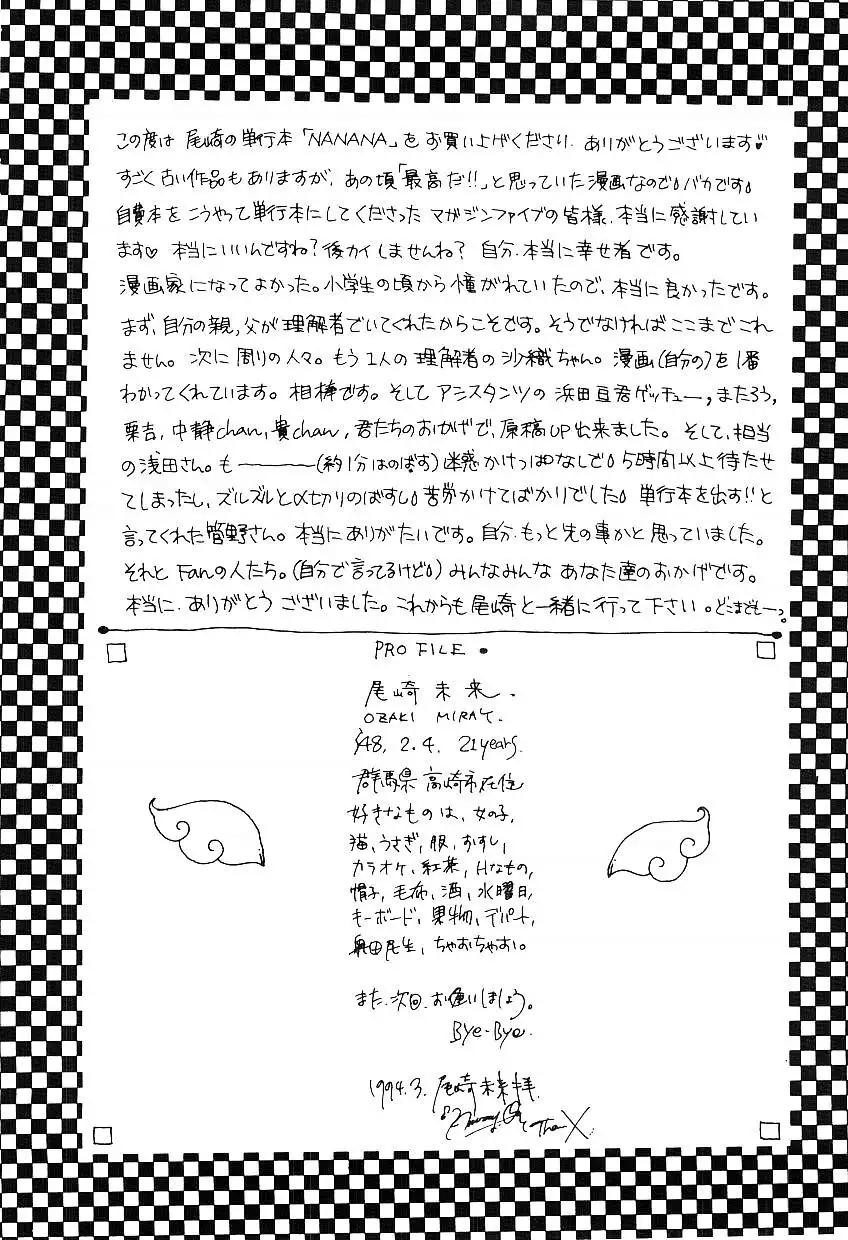 この度は 尾崎の単行本「NANANA」を お買い上げくださり、ありがとうございます♥
すごく古い作品もありますが、あの頃「最高だ!!」と思っていた漫画なので、バカです。
自費本を こうやって単行本にしてくださった マガジンファイブの皆様、本当に感謝してい
ます♡ 本当にいいんですね?後カイしませんね? 自分、本当に幸せ者です。
漫画家になってよかった。小学生の頃から憧がれていたので、本当に良かったです。
まず、自分の親,父が理解者でいてくれたからこそです。そうでなければここまでこれ
ません。次に周りの人々。もう1人の理解者の沙織ちゃん。漫画(自分の)を1番
わかってくれています。相棒です。そして アシスタンツの 浜田亘君ゲッチュー,またろう,
栗吉,中静chan,貴chan,君たちのおかげで、原稿UP出来ました。そして、担当
の浅田さん。も————(約1分はのばす)迷惑かけっぱなしで。5時間以上待たせ
てしまったし、ズルズルと〆切りのばすし。苦労かけてばかりでした。単行本を出す!!と
言ってくれた菅野さん。本当にありがたいです。自分、もっと先の事かと思っていました。
それと Fanの人たち。(自分で言ってるけど。)みんなみんな あなた達のおかげです。
本当に、ありがとう ございました。これからも尾崎と一緒に行って下さい。どこまでもーっ。
PRO FILE ●
尾崎 未来.
OZAKI MIRAY.
'48. 2. 4. 21years.
群馬県 高崎市在住
好きなものは、女の子,
猫,うさぎ,服,おすし,
カラオケ,紅茶,Hなもの,
帽子,毛布,酒,水曜日,
キーボード,果物,デパート,
奥田民生,ちゃおちゃお。
また、次回、お逢いしましょう。
Bye-Bye.
1994.3. 尾崎未来拝.